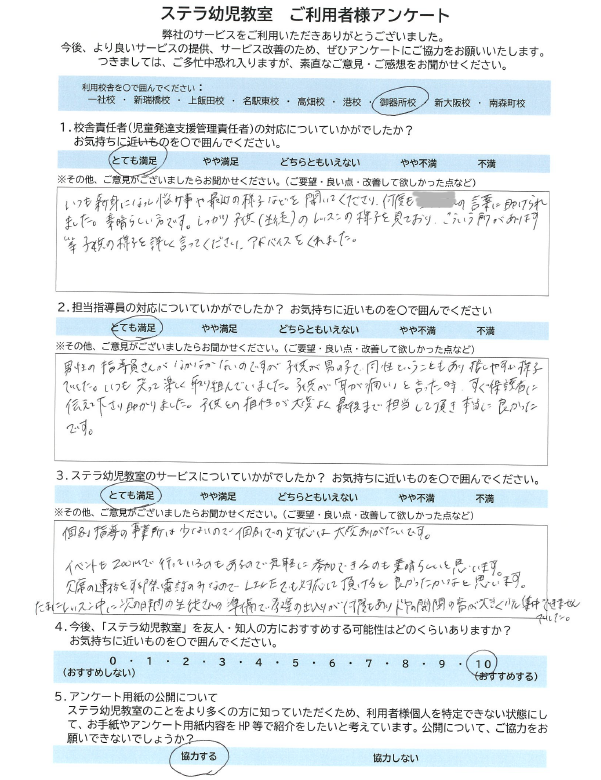 ステラ幼児教室 ご利用者様アンケート
弊社のサービスをご利用いただきありがとうございました。
今後、より良いサービスの提供、サービス改善のため、ぜひアンケートにご協力をお願いいたします。
つきましては、ご多忙中恐れ入りますが、素直なご意見・ご感想をお聞かせください。
利用校舎を〇で囲んでください:
一社校 ・ 新瑞橋校 ・ 上飯田校 ・ 名駅東校 ・ 高畑校 ・ 港校 ・ 御器所校 ・ 新大阪校 ・ 南森町校
1. 校舎責任者(児童発達支援管理責任者)の対応についていかがでしたか?
お気持ちに近いものを〇で囲んでください。
とても満足 やや満足 どちらともいえない やや不満 不満
※その他、ご意見がございましたらお聞かせください。(ご要望・良い点・改善して欲しかった点など)
いつも親身になり悩み事や最近の様子などを聞いてくださり、何度も の言葉に助けられ
ました。素晴らしい方です。しっかり子供(生徒)のレッスンの様子を見ており、こういう所があります
等子供の様子を詳しく言ってくださり、アドバイスをくれました。
2. 担当指導員の対応についていかがでしたか? お気持ちに近いものを〇で囲んでください
とても満足 やや満足 どちらともいえない やや不満 不満
※その他、ご意見がございましたらお聞かせください。(ご要望・良い点・改善して欲しかった点など)
男性の指導員さんがなかなかいないのですが子供が男の子で、同性ということもあり話しやすい様子
でした。いつも 楽しく取り組んでいました。子供が「耳が痛い」と言った時、すぐ保護者に
伝えて下さり助かりました。子供との相性が大変よく最後まで担当して頂き本当に良かった
です。
3. ステラ幼児教室のサービスについていかがでしたか? お気持ちに近いものを〇で囲んでください。
とても満足 やや満足 どちらともいえない やや不満 不満
※その他、ご意見がございましたらお聞かせください。(ご要望・良い点・改善して欲しかった点など)
個別指導の事業所は少ないので個別での支援は大変ありがたいです。
イベントもZOOMで行っているのもあるので気軽に参加できるのも素晴らしいと思います。
欠席の連絡をする際、電話のみなのでLINEでも対応して頂けると良かったかなと思います。
たまにレッスン中に次の時間の生徒さんの準備で、先生の出入りが何度もありドアの開閉の音が大きくなり集中できません
でした。
4. 今後、「ステラ幼児教室」を友人・知人の方におすすめする可能性はどのくらいありますか?
お気持ちに近いものを〇で囲んでください。
0 ・ 1 ・ 2 ・ 3 ・ 4 ・ 5 ・ 6 ・ 7 ・ 8 ・ 9 ・ 10
(おすすめしない) (おすすめする)
5. アンケート用紙の公開について
ステラ幼児教室のことをより多くの方に知っていただくため、利用者様個人を特定できない状態にし
て、お手紙やアンケート用紙内容を HP 等で紹介をしたいと考えています。公開について、ご協力をお
願いできないでしょうか?
協力する 協力しない